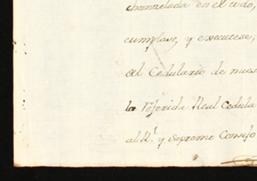 chancelada en el cuño,
cumplase, y executese,
al Cedulario de nues
la referida Real Cedula
al R.^l y Supremo Consejo